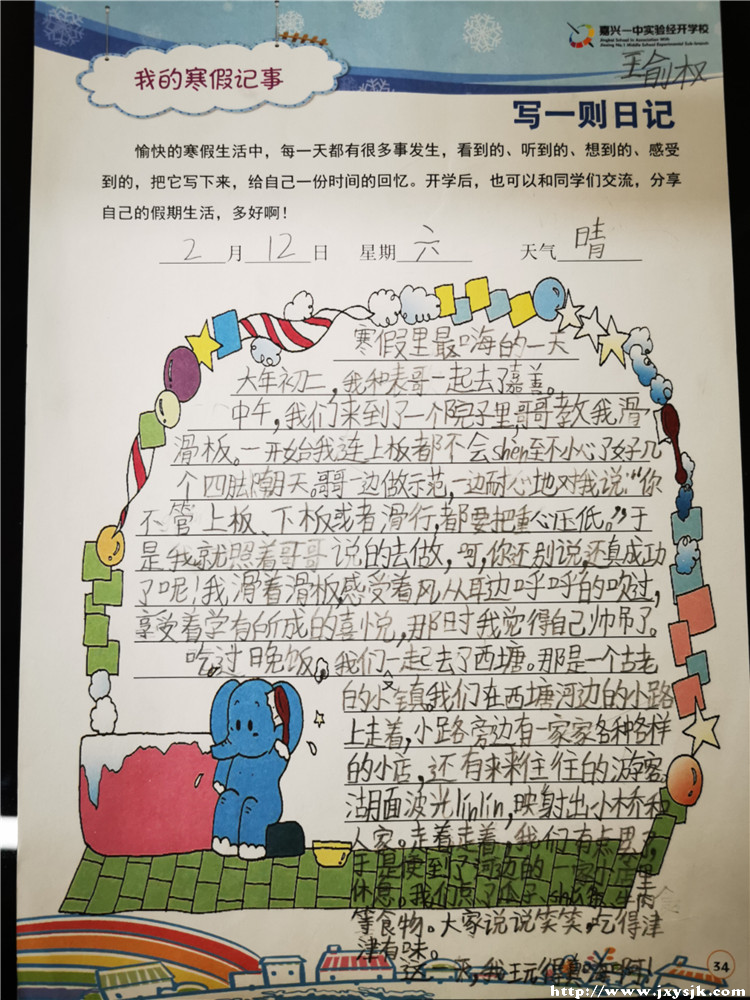 嘉兴一中实验经开学校
王俞权
我的寒假记事
写一则日记
愉快的寒假生活中，每一天都有很多事发生，看到的、听到的、想到的、感受
到的，把它写下来，给自己一份时间的回忆。开学后，也可以和同学们交流，分享
自己的假期生活，多好啊！
2月12日 星期六 天气晴
寒假里最嗨的一天
大年初二，我和表哥一起去了嘉善。
中午，我们来到了一个院子里，哥哥教我滑
滑板。一开始我连上板都不会shen至不小心了好几
个四肢朝天。哥哥一边做示范，一边耐心地对我说：“你
不管上板、下板或者滑行，都要把重心压低。”于
是我就照着哥哥说的去做，呵，你还别说，还真成功
了呢！我滑着滑板，感受着风从耳边呼呼的吹过，
享受着学有所成的喜悦，那时我觉得自己帅吊了。
吃过晚饭，我们一起去了西塘。那是一个古老
的小镇。我们在西塘河边的小路
上走着，小路旁边有一家家各种各样
的小店，还有来来往往的游客。
湖面波光linlin，映射出小桥和
人家。走着走着，我们有点累了，
于是便到了河边的一家小店里
休息。我们点了瓜子、
等食物。大家说说笑笑，吃得津
津有味。
这一天，我玩得真嗨啊！
34
http://www.jxysjk.com